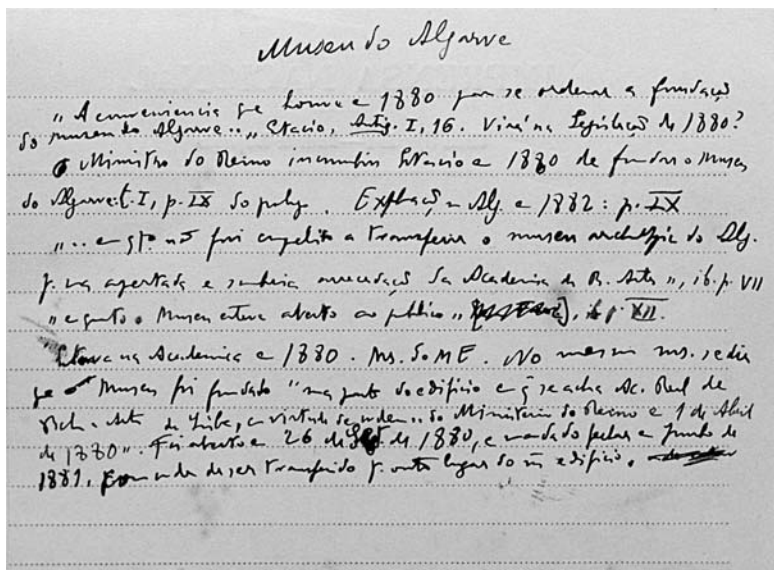 Museu do Algarve
"A conveniencia que houve e 1880 para se ordenar a fundaç
do museu do Algarve.. ,, Estacio, Antig. I, 16. Virá na Legislaç de 1880?
O Ministro do Reino incumbiu Estacio e 1880 de fundar o Museu
do Algarve: t. I, p. IX do prolog. Explraç n Alg. e 1882: p. IX
"... e qto. nã fui compelido a transferir o museu archeologic do Alg.
p. na apertada e sombria arrecadaç da Academia de B. Artes ,, ib. p. VII
"e quanto o Museu esteve aberto ao publico ,, ib. p. XII.
Estava na Academia e 1880. Ms. do ME. No mesmo ms. se diz
que o Museu foi fundado "na parte do edificio e q̃ se acha Ac. Real de
Bellas-Artes de Lisba, em virtude da ordem ,, do Ministerio do Reino e 1 de Abril
de 1880 ,,. Foi aberto e 26 de Set. de 1880, e mandado fechar e Junho de
1881, com ordem de ser transferido p. outro lugar do m edificio.